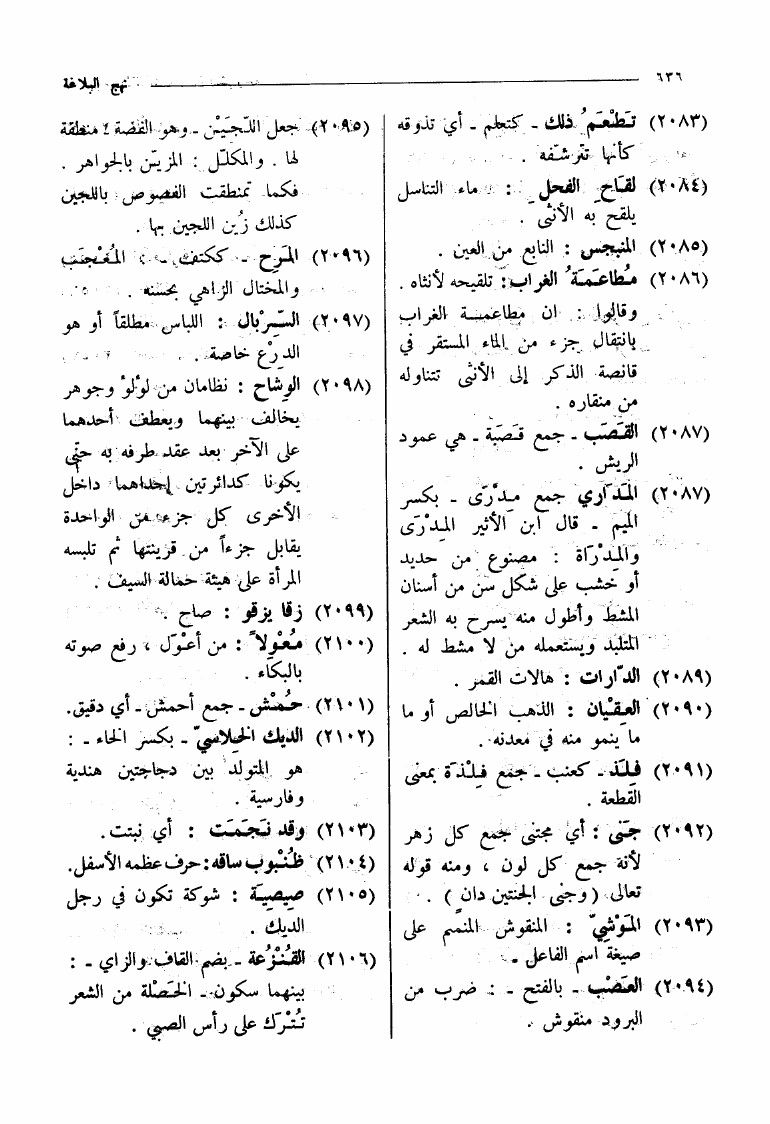 ٦٣٦ نهج البلاغة
(٢٠٨٣) تَطْعَمُ ذلك ـ كتعلم ـ أي تذوقه
كأنها تترشّفه .
(٢٠٨٤) لقاح الفحل : ماء التناسل
يلقح به الأنثى .
(٢٠٨٥) المنبجس : النابع من العين .
(٢٠٨٦) مُطاعَمَةُ الغراب : تلقيحه لأنثاه .
وقالوا : ان مطاعمة الغراب
بانتقال جزء من الماء المستقر في
قانصة الذكر إلى الأنثى تتناوله
من منقاره .
(٢٠٨٧) القَصَب ـ جمع قَصَبة ـ هي عمود
الريش .
(٢٠٨٧) المَدَاري جمع مِدْرَى ـ بكسر
الميم ـ قال ابن الأثير المِدْرَى
والمِدْرَاة : مصنوع من حديد
أو خشب على شكل سن من أسنان
المشط وأطول منه يسرح به الشعر
المتلبد ويستعمله من لا مشط له .
(٢٠٨٩) الدّارات : هالات القمر .
(٢٠٩٠) العِقْيان : الذهب الخالص أو ما
ما ينمو منه في معدنه .
(٢٠٩١) فِلَذ ـ كعنب ـ جمع فِلْذَة بمعنى
القطعة .
(٢٠٩٢) جَنَى : أي مجتنى جمع كل زهر
لأنة جمع كل لون ، ومنه قوله
تعالى ( وجنى الجنتين دان ) .
(٢٠٩٣) المَوْشِيّ : المنقوش المنمنم على
صيغة اسم الفاعل ـ
(٢٠٩٤) العَصْب ـ بالفتح ـ : ضرب من
البرود منقوش .
(٢٠٩٥) جعل اللّجَيْن ـ وهو الفضة ـ منطقة
لها . والمكلّل : المزيّن بالجواهر .
فكما تمنطقت الفصوص باللجين
كذلك زُيِّن اللجين بها .
(٢٠٩٦) المَرِح ـ ككتف ـ : المُعْجَب
والمختال الزاهي بحسنه .
(٢٠٩٧) السِّرْبال : اللباس مطلقاً أو هو
الدرْع خاصة .
(٢٠٩٨) الوِشاح : نظامان من لؤلؤ وجوهر
يخالف بينهما ويعطف أحدهما
على الآخر بعد عقد طرفه به حتى
يكونا كدائرتين إحداهما داخل
الأخرى كل جزء من الواحدة
يقابل جزءاً من قرينتها ثم تلبسه
المرأة على هيئة حمالة السيف .
(٢٠٩٩) زقا يزقو : صاح .
(٢١٠٠) مُعْوِلاً : من أعْوَل ، رفع صوته
بالبكاء .
(٢١٠١) حُمْش ـ جمع أحمش ـ أي دقيق .
(٢١٠٢) الديك الخِلاسيّ ـ بكسر الخاء ـ :
هو المتولد بين دجاجتين هندية
وفارسية .
(٢١٠٣) وقد نَجَمَت : أي نبتت .
(٢١٠٤) ظُنْبوب ساقه : حرف عظمه الأسفل .
(٢١٠٥) صيصِيَة : شوكة تكون في رجل
الديك .
(٢١٠٦) القُنْزُعة ـ بضم القاف والزاي ـ :
بينهما سكون ـ الخصْلة من الشعر
تُتْرَك على رأس الصبي .